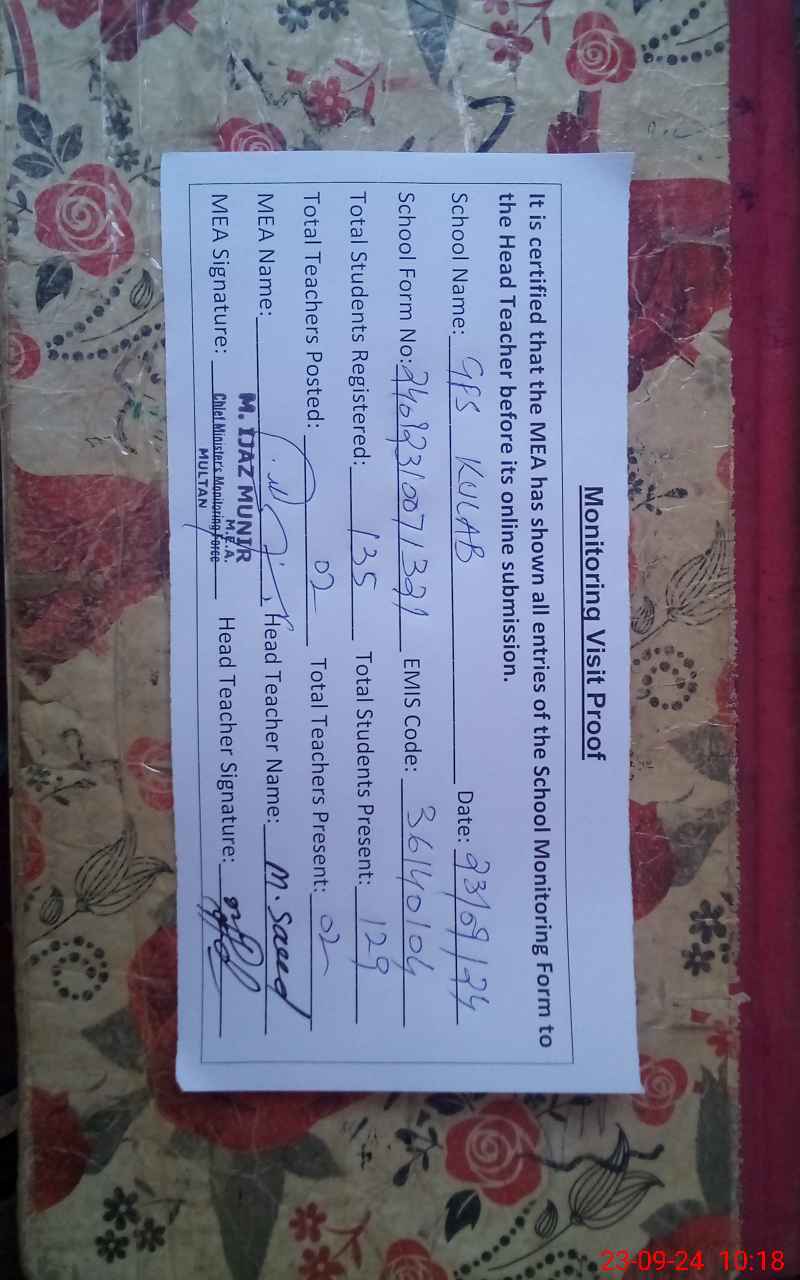 Monitoring Visit Proof
It is certified that the MEA has shown all entries of the School Monitoring Form to
the Head Teacher before its online submission.
School Name: GPS KULAB Date: 23/09/24
School Form No: 24092310071321 EMIS Code: 36140104
Total Students Registered: 135 Total Students Present: 129
Total Teachers Posted: 02 Total Teachers Present: 02
MEA Name: Head Teacher Name: M. Saeed
M. IJAZ MUNIR
M.E.A.
MEA Signature: Chief Minister's Monitoring Force Head Teacher Signature:
MULTAN
23-09-24 10:18